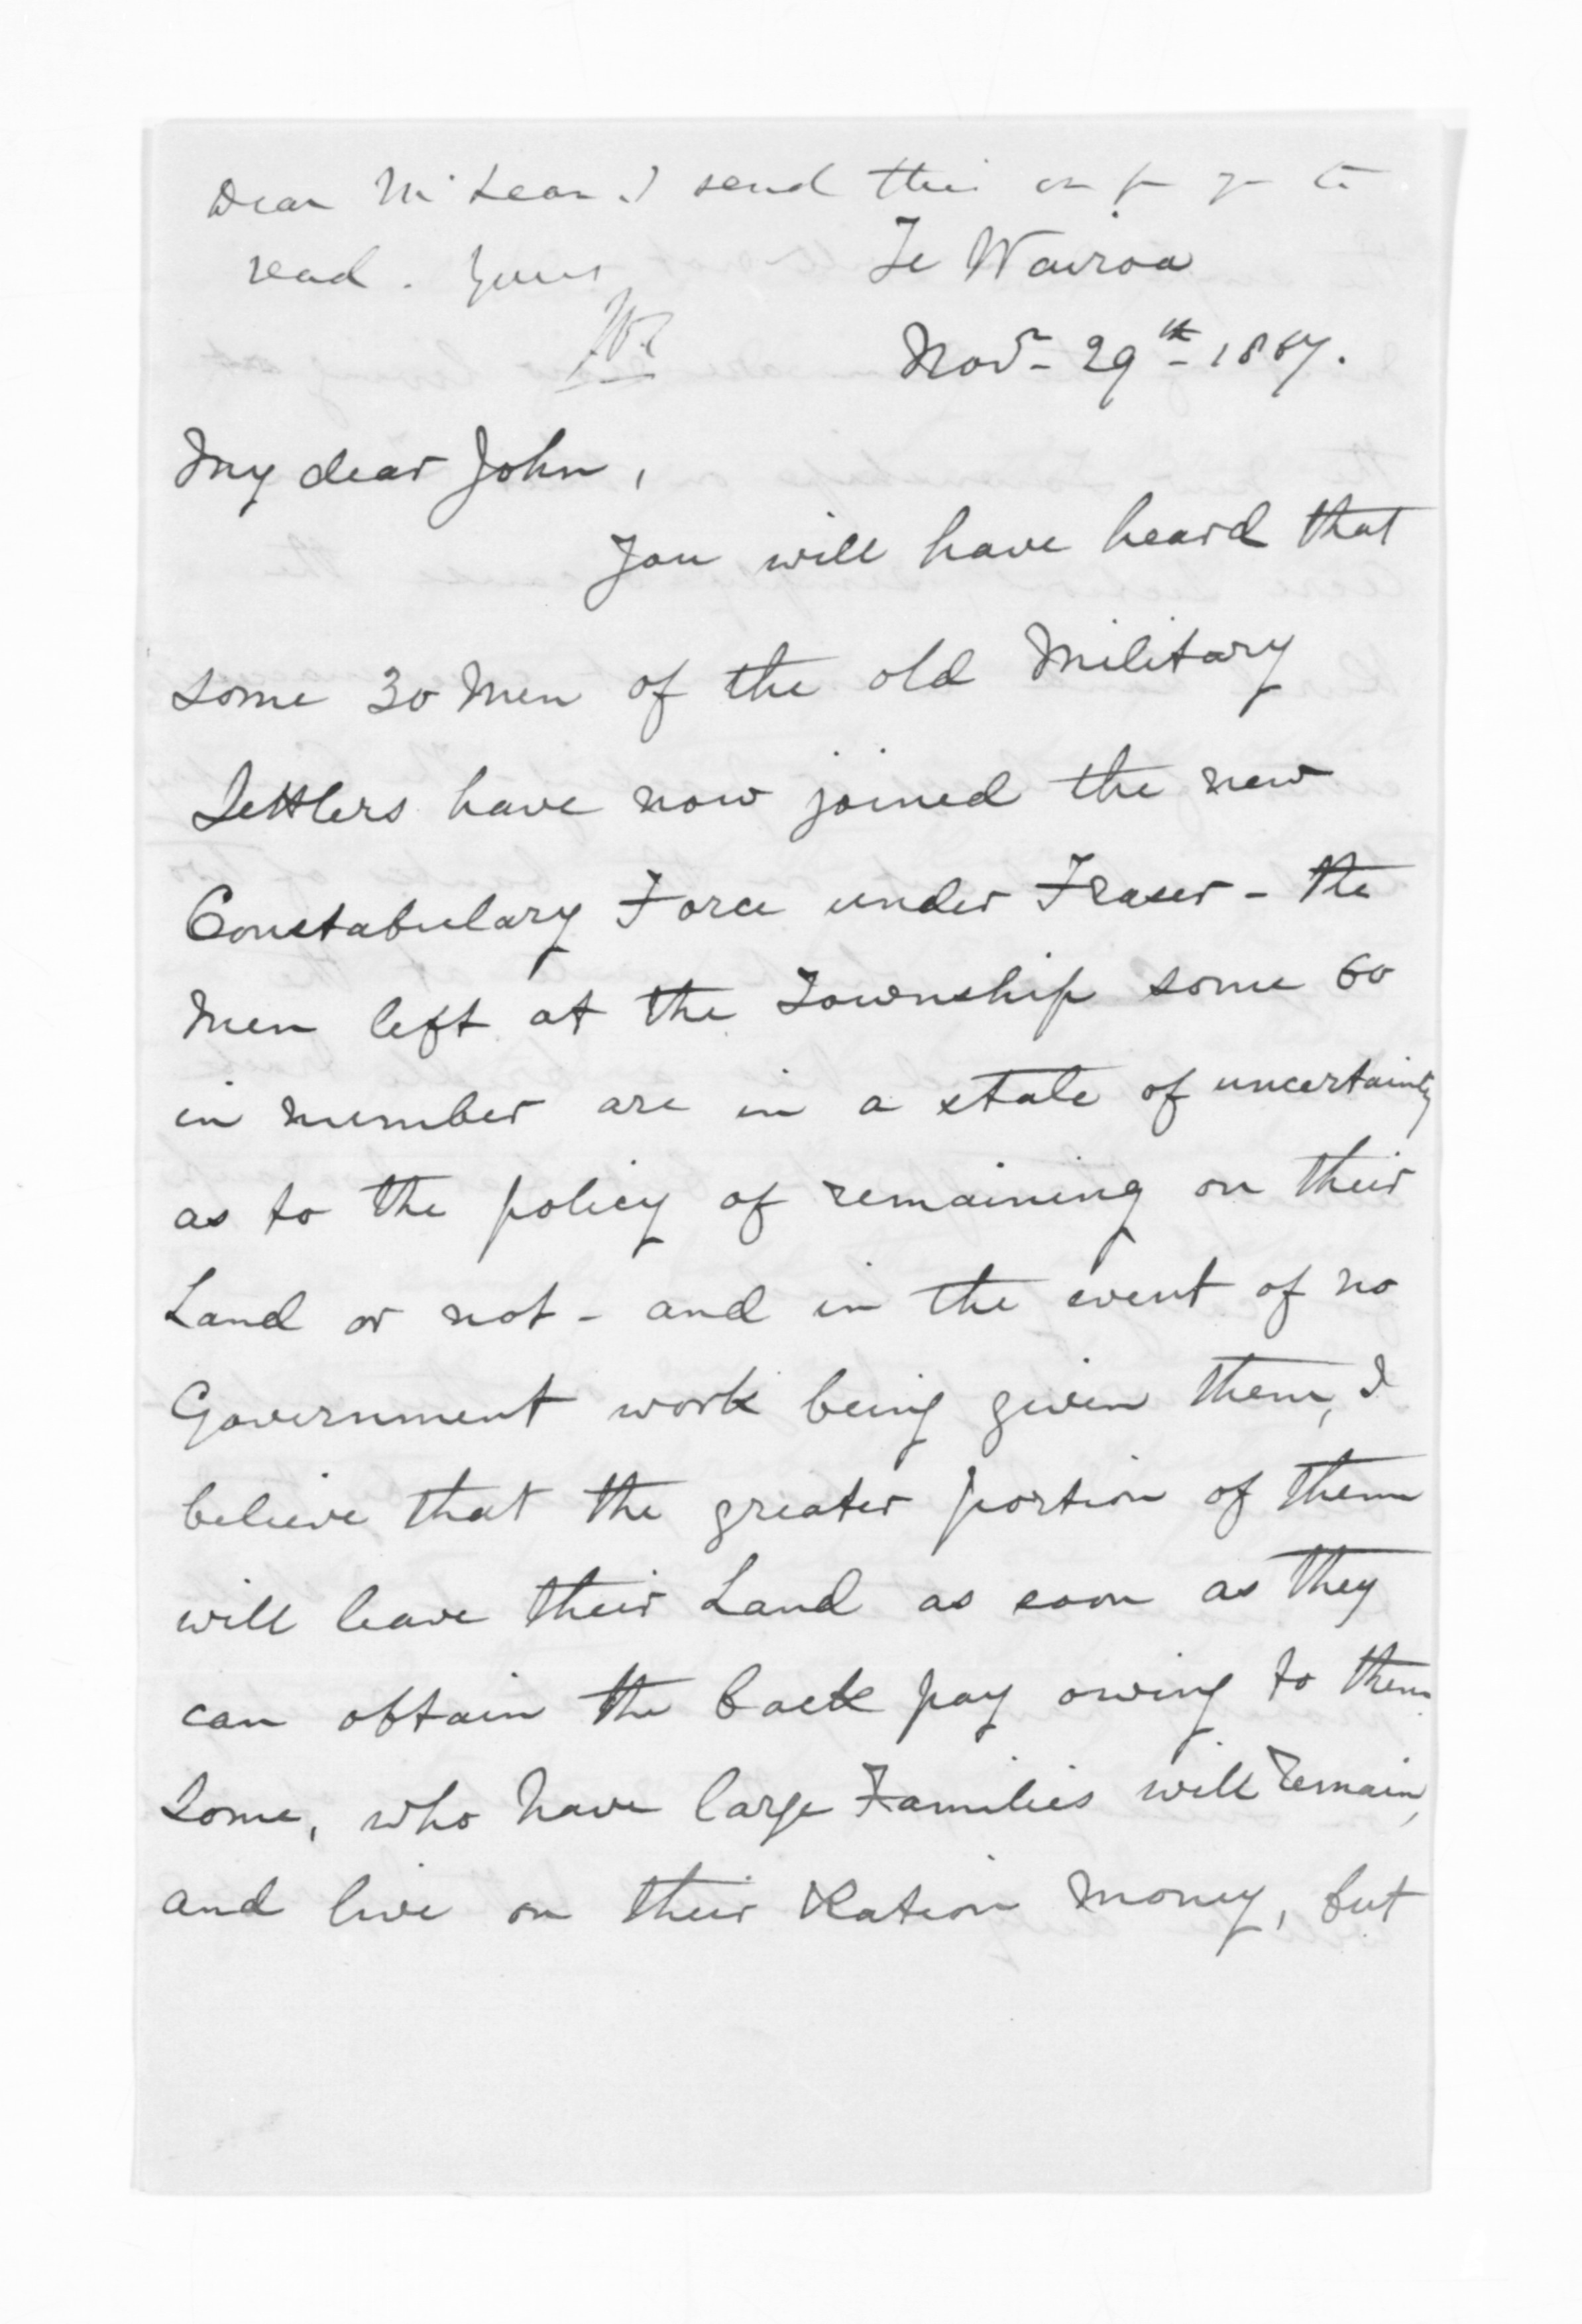 Dear McLean. I send this on for you to
read. Yours
Te Wairoa
Novr. 29th 1867.
My dear John,
You will have heard that
some 30 Men of the old Military
Settlers have now joined the new
Constabulary Force under Fraser - the
Men left at the Township some 60
in number are in a state of uncertainty
as to the policy of remaining on their
Land or not - and in the event of no
Government work being given them, I
believe that the greater portion of them
will leave their Land as soon as they
can obtain the back pay owing to them
Some, who have large Families will remain,
and live on their Ration Money, but